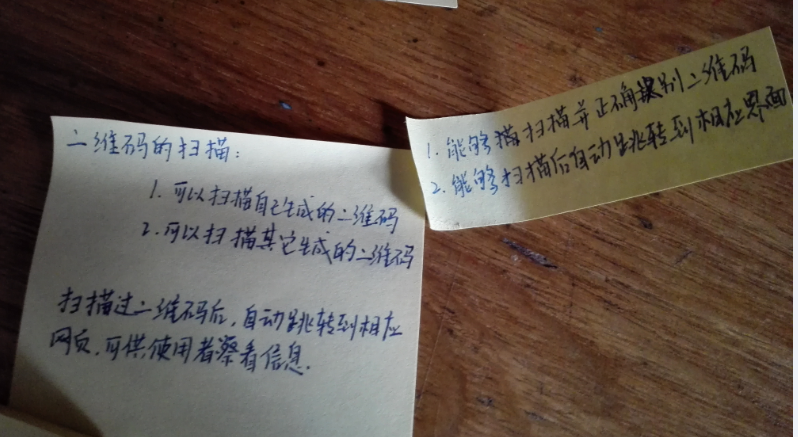 二维码的扫描:
1. 可以扫描自己生成的二维码
2. 可以扫描其它生成的二维码
扫描过二维码后,自动跳转到相应
网页,可供使用者察看信息.
1. 能够描扫描并正确识别二维码
2. 能够扫描后自动跳转到相应界面